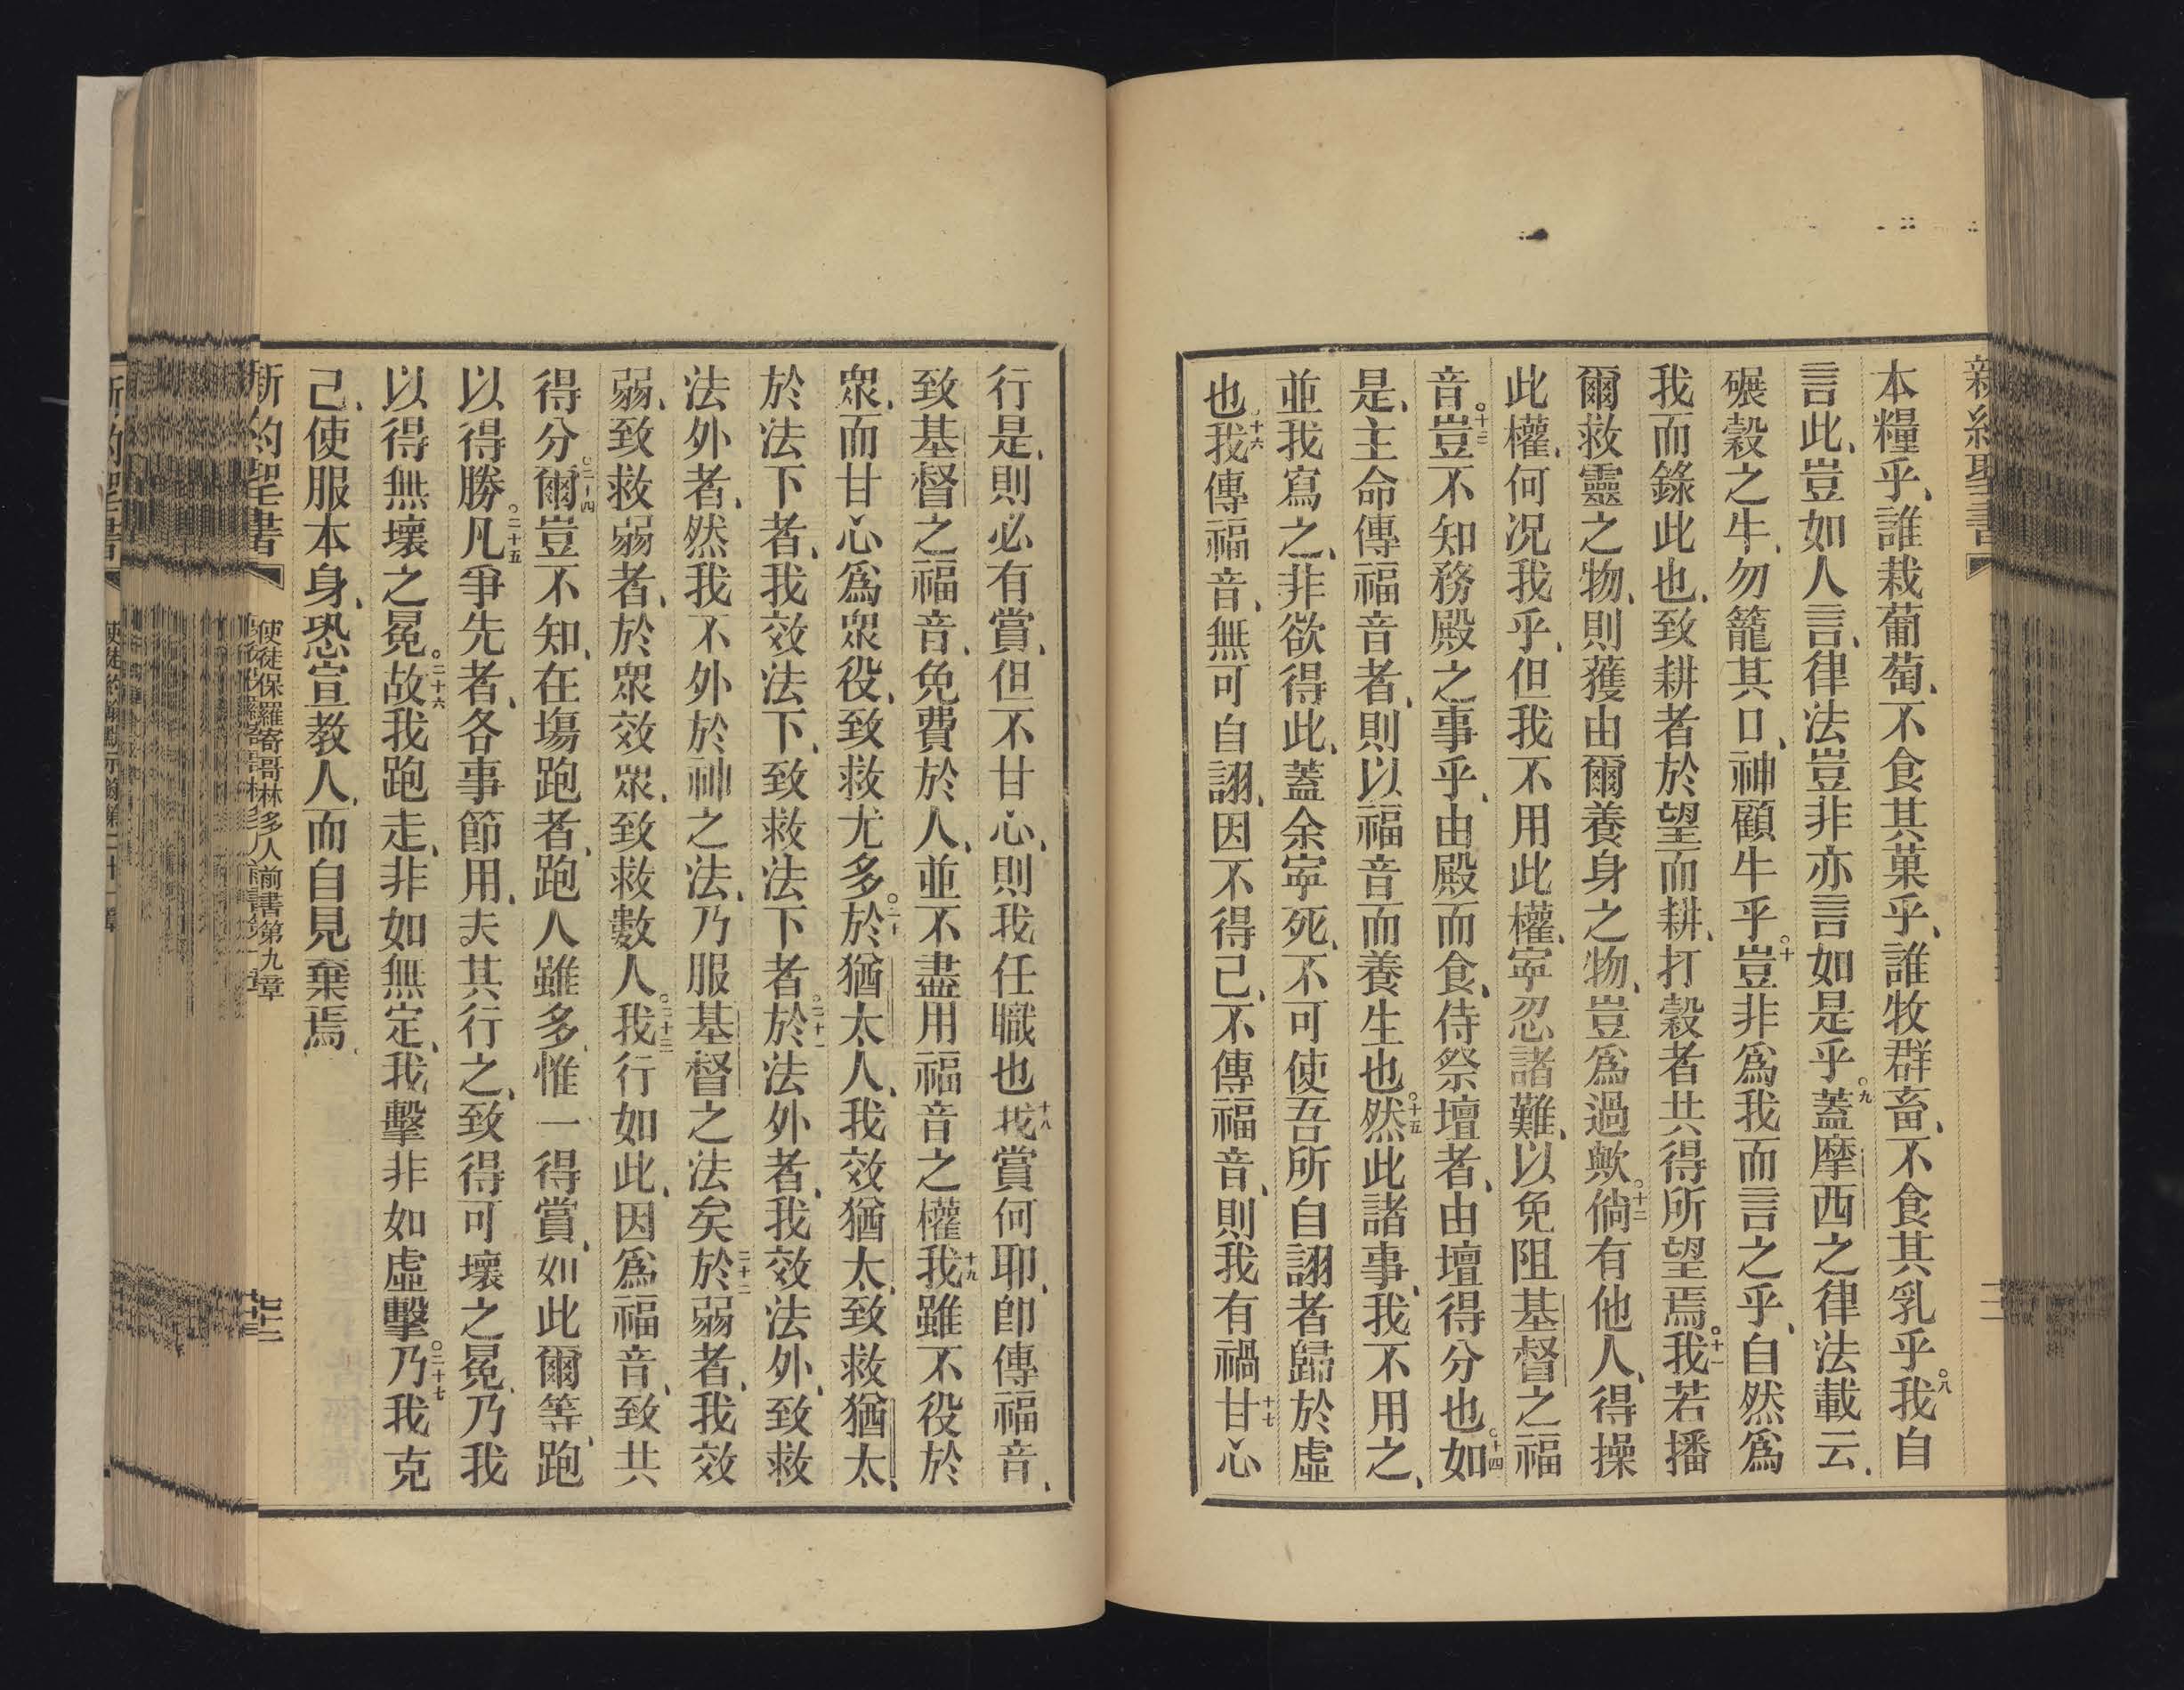 新約聖書
本糧乎、誰栽葡萄、不食其菓乎、誰牧群畜、不食其乳乎。八我自
言此、豈如人言、律法豈非亦言如是乎。九蓋摩西之律法載云、
碾穀之牛、勿籠其口、神顧牛乎。十豈非爲我而言之乎、自然爲
我而錄此也、致耕者於望而耕、打穀者共得所望焉。十一我若播
爾救靈之物、則獲由爾養身之物、豈爲過歟。十二倘有他人、得操
此權、何況我乎、但我不用此權、寧忍諸難、以免阻基督之福
音。十三豈不知務殿之事乎、由殿而食、侍祭壇者、由壇得分也。十四如
是、主命傳福音者、則以福音而養生也。十五然此諸事、我不用之、
並我寫之、非欲得此、蓋余寧死、不可使吾所自詡者歸於虛
也。十六我傳福音、無可自詡、因不得已、不傳福音、則我有禍。十七甘心
行是、則必有賞、但不甘心、則我任職也。十八我賞何耶、卽傳福音、
致基督之福音、免費於人、並不盡用福音之權。十九我雖不役於
衆、而甘心爲衆役、致救尤多。二十於猶太人、我效猶太、致救猶太、
於法下者、我效法下、致救法下者。二十一於法外者、我效法外、致救
法外者、然我不外於神之法、乃服基督之法矣。二十二於弱者、我效
弱、致救弱者、於衆效衆、致救數人。二十三我行如此、因爲福音、致共
得分。二十四爾豈不知、在塲跑者、跑人雖多、惟一得賞、如此爾等、跑
以得勝。二十五凡爭先者、各事節用、夫其行之、致得可壞之冕、乃我
以得無壞之冕。二十六故我跑走、非如無定、我擊非如虛擊。二十七乃我克
己、使服本身、恐宣教人、而自見棄焉、
新約聖書
使徒保羅寄哥林多人前書第九章